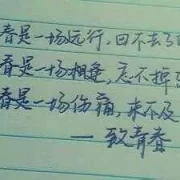 春是一场远行,回不去了
春是一场相逢,忘不掉
春是一场伤痛,来不及
—致青春